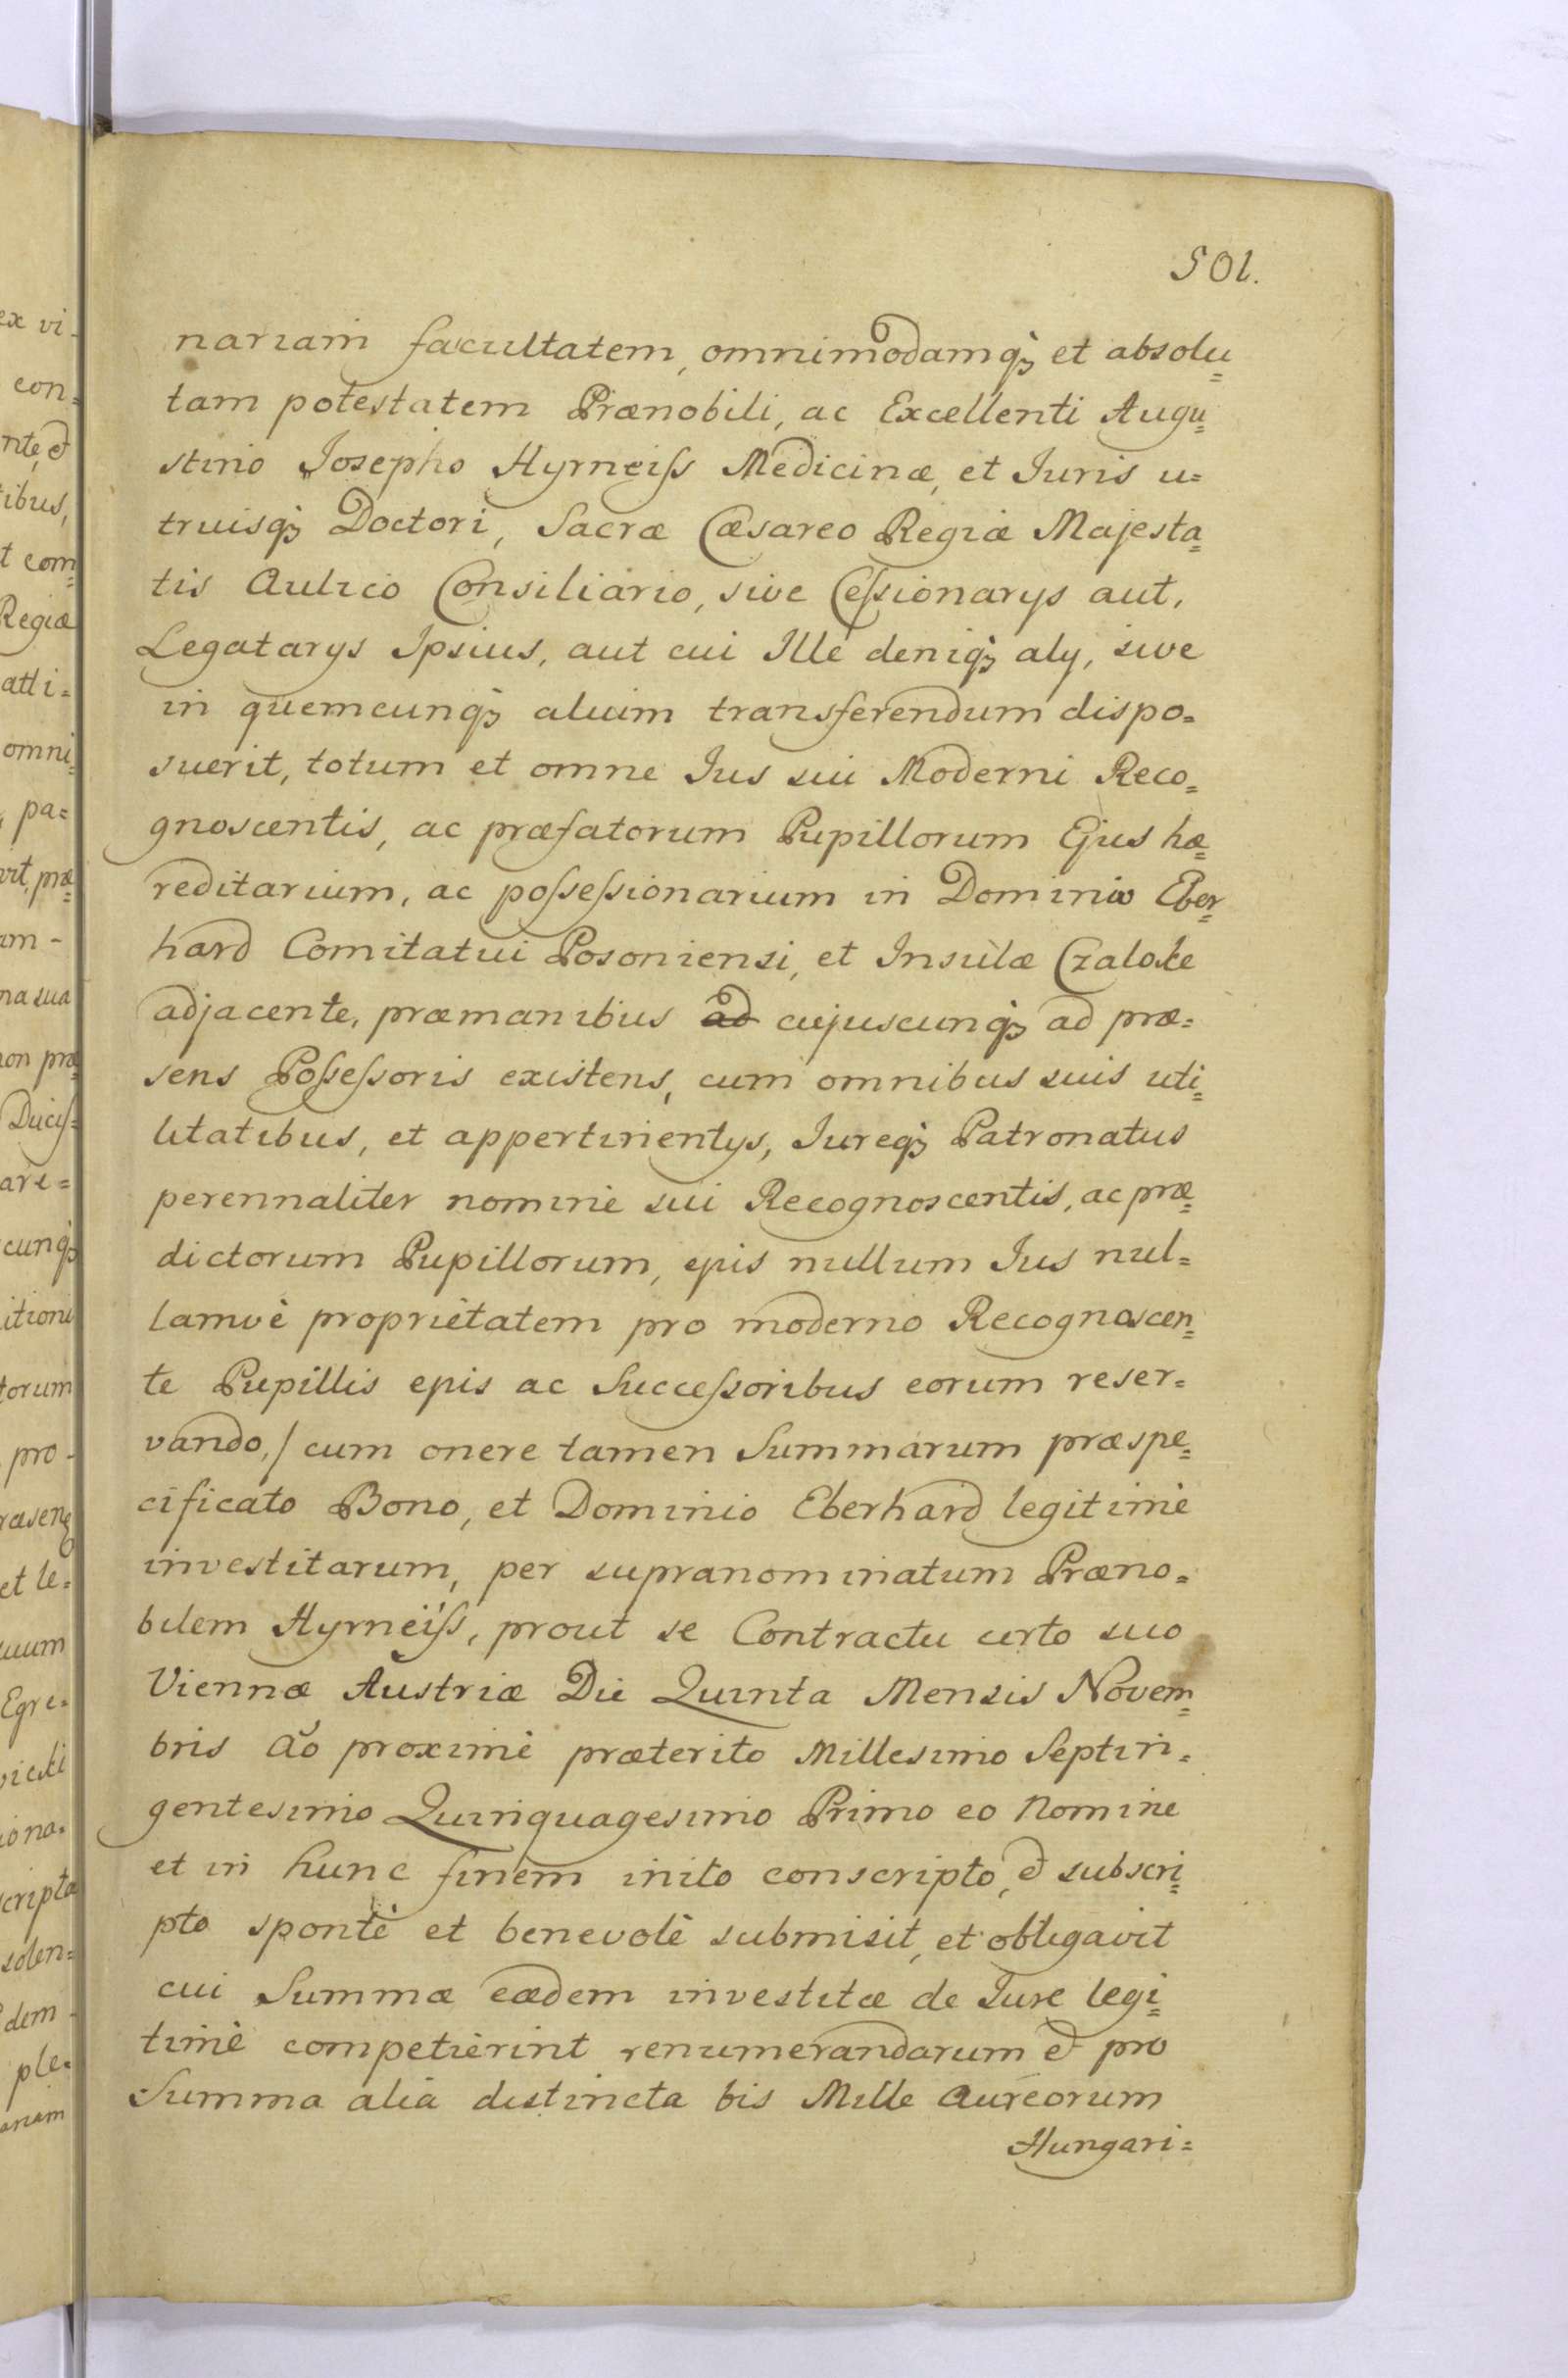 501.
nariam facultatem, omnimodamq; et absolu=
tam potestatem Prænobili, ac Excellenti Augu=
stino Josepho Hyrneiss Medicinæ, et Juris u=
truisq; Doctori, Sacræ Cæsareo Regiæ Majesta=
tis Aulico Consiliario, sive Cessionarys aut,
Legatarys Ipsius, aut cui Ille deniq; aly, sive
in quemcunq; alium transferendum dispo=
suerit, totum et omne Jus sui Moderni Reco=
gnoscentis, ac præfatorum Pupillorum Ejus hæ=
reditarium, ac possessionarium in Dominio Eber=
hard Comitatui Posoniensi, et Insulæ Czaloke
adjacente, præmanibus ad cujuscunq; ad præ=
sens Possessoris existens, cum omnibus suis uti=
litatibus, et appertinentys, Jureq; Patronatus
perennaliter nomine sui Recognoscentis, ac præ=
dictorum Pupillorum, epis nullum Jus nul=
lamvè proprietatem pro moderno Recognoscen=
te Pupillis epis ac Successoribus eorum reser=
vando,/ cum onere tamen Summarum præspe=
cificato Bono, et Dominio Eberhard legitimè
investitarum, per supranominatum Præno=
bilem Hyrneiss, prout se Contractu certo suo
Viennæ Austriæ Die Quinta Mensis Novem=
bris Aõ proximè præterito Millesimo Septin=
gentesimo Quinquagesimo Primo eo Nomine
et in hunc finem inito conscripto, & subscri=
pto spontè et benevolè submisit, et obligavit
cui Summæ eædem investitæ de Jure legi=
timè competierint renumerandarum & pro
Summa alia distincta bis Mille Aureorum
Hungari=
ex vi-
con=
nte, &
tibus,
t com=
Regiæ
atti=
omni=
pa=
vit, præ=
am -
na sua
non præ=
Ducis=
are=
cunq;
itioni
torum
pro-
et le=
Egre=
iona=
scripta
solen=
dem-
ple=
ariam